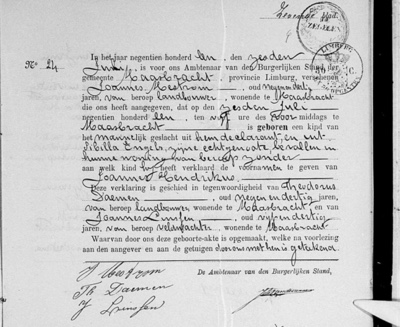 Zevende Blad.
ZEGELREGT
LIMBURG
No. 24
In het jaar negentien honderd tien, den zesden
Juli, is voor ons Ambtenaar van den Burgerlijken Stand der
gemeente Maasbracht, provincie Limburg, verschenen
Joannes Meetrom, oud negenendertig
jaren, van beroep landbouwer, wonende te Maasbracht
die ons heeft aangegeven, dat op den zesden Juli
negentien honderd tien, ten ure des voor middags te
Maasbracht is geboren een kind van
het mannelijk geslacht uit hem declarant, en uit
Sibilla Engels, zijne echtgenoote, bevallen in
hunne woning, van beroep zonder
aan welk kind hij heeft verklaard de voornamen te geven van
Joannes Hendrikus
Deze verklaring is geschied in tegenwoordigheid van Theodorus
Daemen, oud negenendertig jaren,
van beroep landbouwer wonende te Maasbracht en van
Joannes Linssen, oud vijfendertig
jaren, van beroep veldwachter, wonende te Maasbracht
Waarvan door ons deze geboorte-akte is opgemaakt, welke na voorlezing
aan den aangever en aan de getuigen door ons met hen is geteekend.
De Ambtenaar van den Burgerlijken Stand,
J Meetrom
Th Daemen
J Linssen